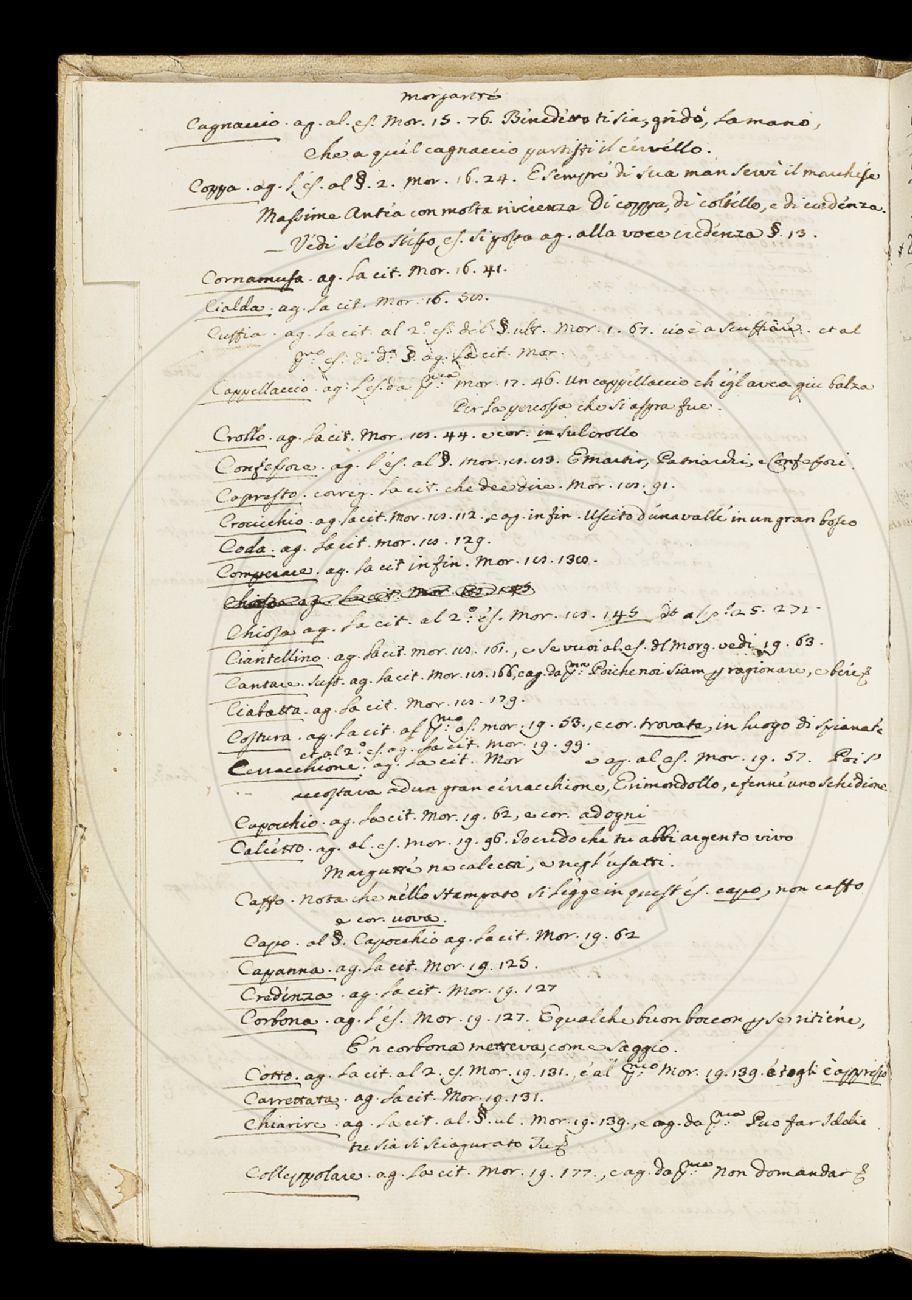 Morgante
Cagnaccio. ag. al. es. Mor. 15. 76. Benedetto ti sia, gridò, la mano,
Che a quel cagnaccio partisti il cervello.
Coppa. ag. l'es. al §. 2. Mor. 16. 24. E sempre di sua man servì il marchese
Massime Antea con molta riverenza Di coppa, di coltello, e di credenza.
— Vedi se lo stesso es. si possa ag. alla voce credenza §. 13.
Cornamusa. ag. la cit. Mor. 16. 41.
Cialda. ag. la cit. Mor. 16.
Cuffia. ag. la cit. al 2.° es. del §. ult. Mor. 1. 67. cioè a scuffiare. et al
es. di d.° §. ag. la cit. Mor.
Cappellaccio. ag. l'es. da Mor. 17. 46. Un cappellaccio ch'egl'avea giù balza
Per la percossa che sì aspra fue.
Crollo. ag. la cit. Mor. 18. 44. e cor. in sul crollo
Confessore. ag. l'es. al §. Mor. 18. E martir, Patriarchi, e Confessori.
Capresto. correg. la cit. che dee dire. Mor. 18. 91.
Crocicchio. ag. la cit. Mor. 18. 112. e ag. in fin. Uscito d'una valle in un gran bosco
Coda. ag. la cit. Mor. 18. 129.
Comperare. ag. la cit in fin. Mor. 18. 130.
Chiosa ag. la cit. Mor. 18. 145
Chiosa ag. la cit. al 2.° es. Mor. 18. 145 25. 272.
Ciantellino. ag. la cit. Mor. 18. 161., e se vuoi al. es. del Morg. vedi 19. 63.
Cantare. Sust. ag. la cit. Mor. 18. 166, e ag. da Poiche noi siam p ragionare, e bere &
Ciabatta. ag. la cit. Mor. 18. 179.
Costura. ag. la cit. al es. Mor. 19. 53., e cor. trovata, in luogo di spianate
et al 2.° es. ag. la cit. Mor. 19. 99.
Cerracchione. ag. la cit. Mor e ag. al es. Mor. 19. 57. Poi s'
accostava ad un gran cerracchione, E rimondollo, e fenne uno schidione
Capocchio. ag. la cit. Mor. 19. 62, e cor. ad ogni
Calcetto. ag. al. es. Mor. 19. 96. Io credo che tu abbi argento vivo
Margutte ne calcetti, e negl'usatti.
Caffo. Nota che nello stampato si legge in quest'es. capo, non caffo
e cor. uova.
Capo. al §. Capocchio ag. la cit. Mor. 19. 62
Capanna. ag. la cit. Mor. 19. 125.
Credenza. ag. la cit. Mor. 19. 127
Corbona. ag. l'es. Mor. 19. 127. E qualche buon boccon p se ritiene,
E'n corbona metteva, come saggio.
Cotto. ag. la cit. al 2. es. Mor. 19. 131., e al Mor. 19. 139. e togli è appresso
Carrettata. ag. la cit. Mor. 19. 131.
Chiarire. ag. la cit. al §. ul. Mor. 19. 139., e ag. da Puo far Iddio
tu sia sì sciagurato Tu &
Colleppolare. ag. la cit. Mor. 19. 177., e ag. da Non domandar &